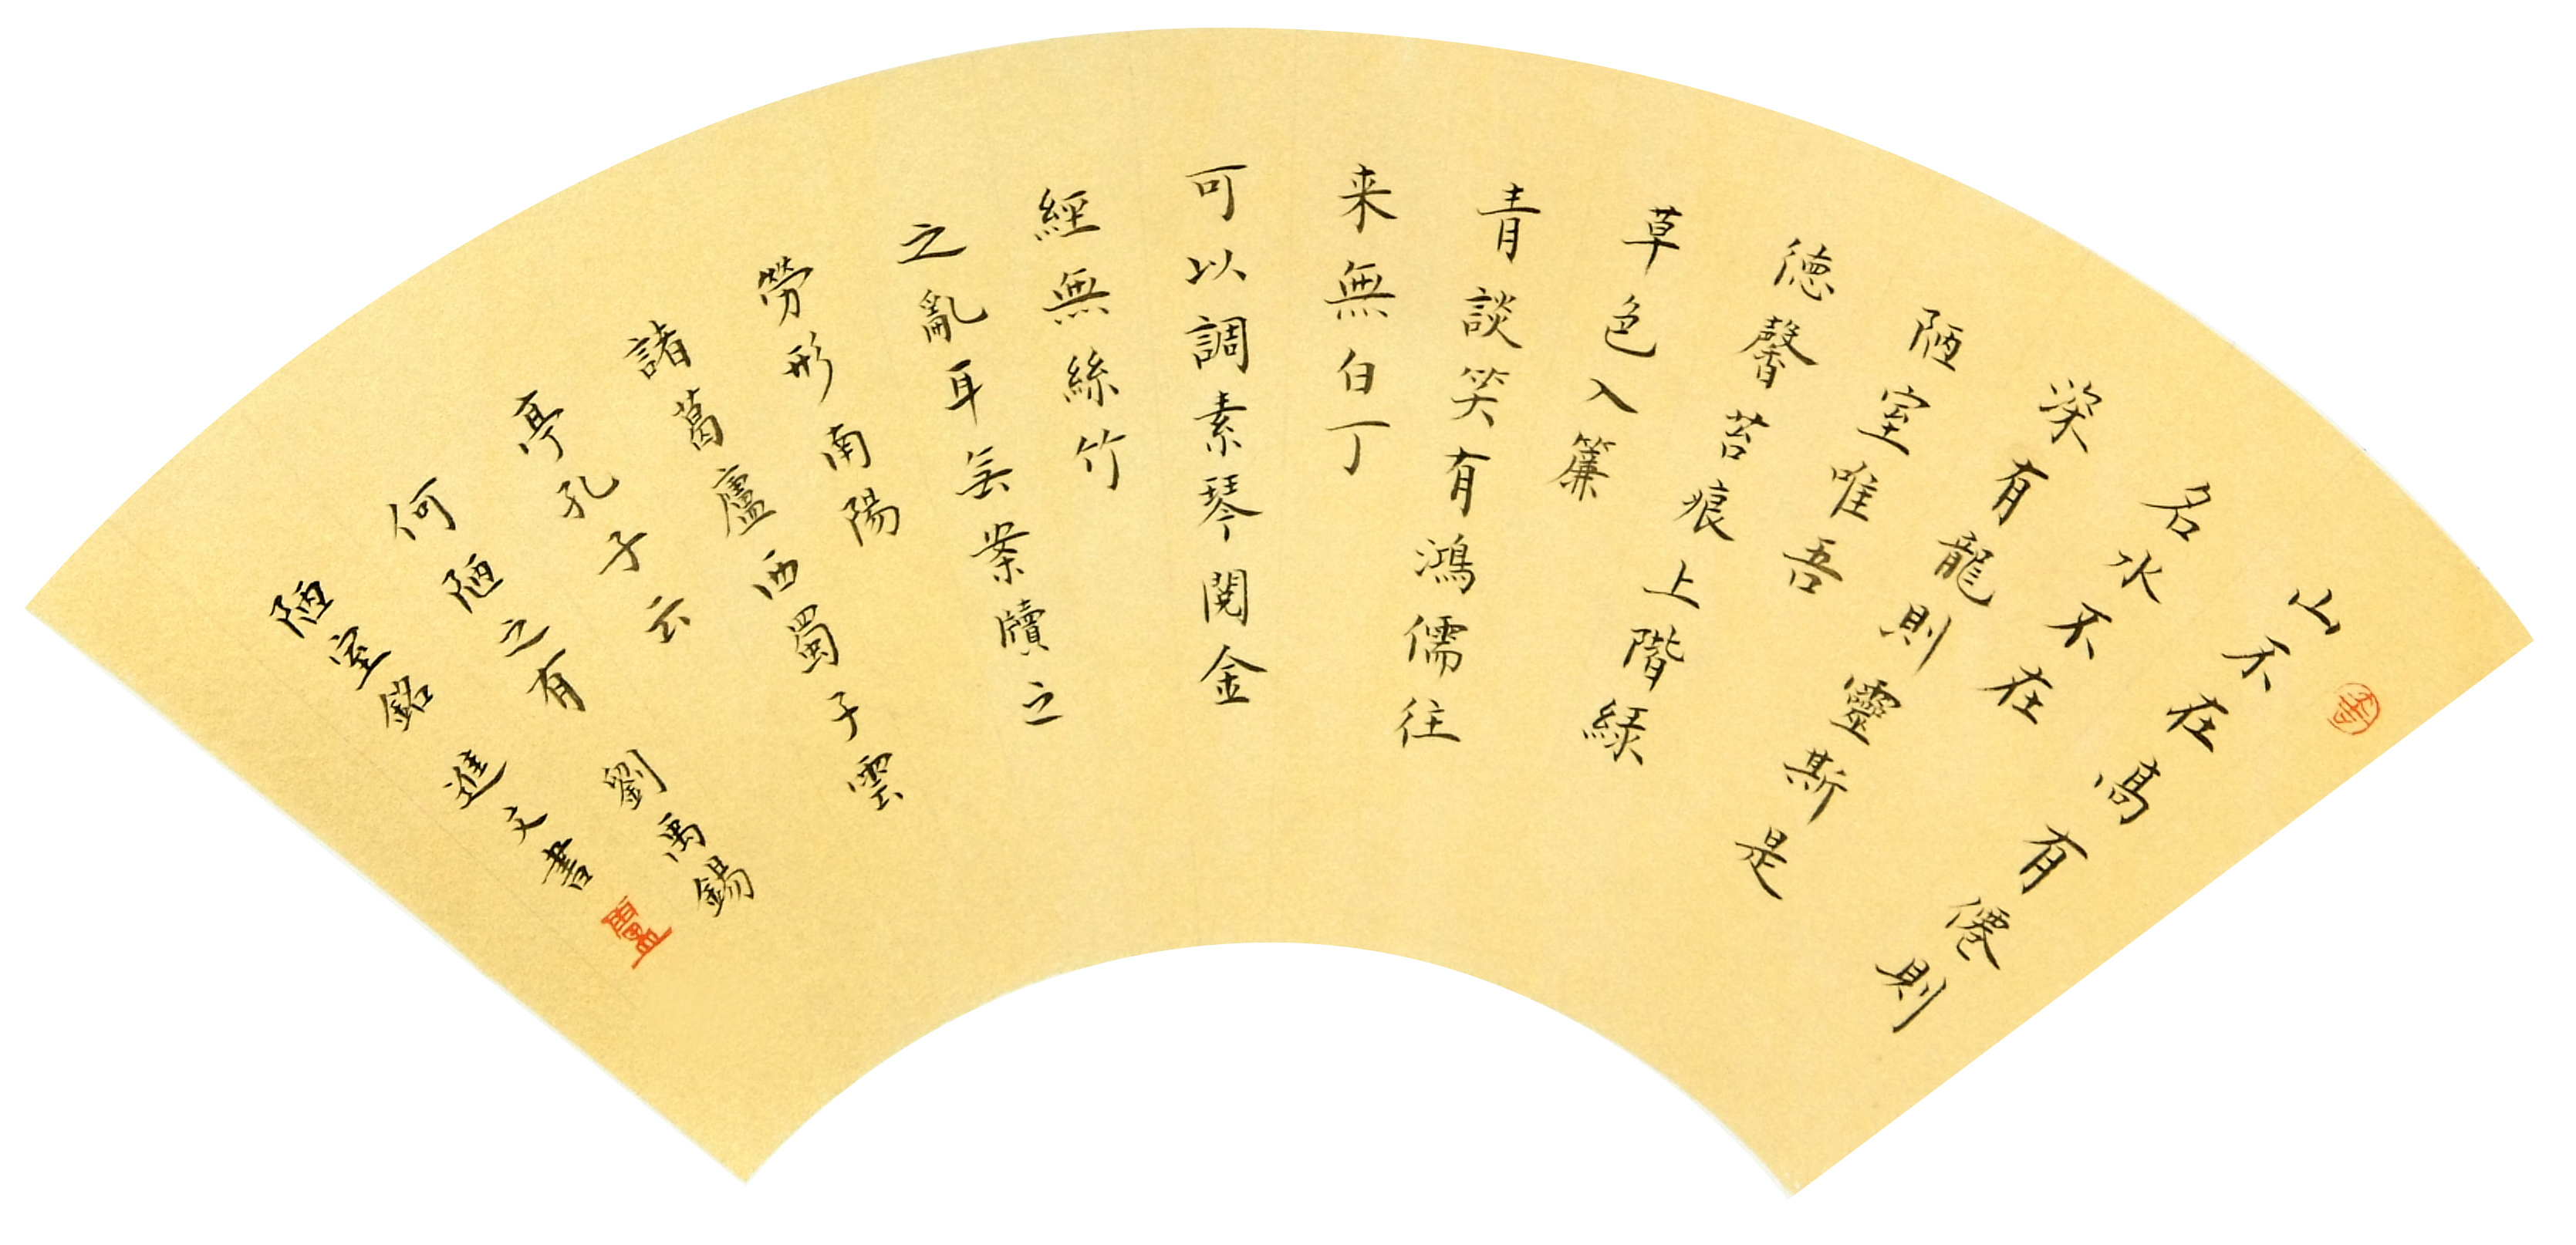 山不在高有僊則
名水不在
深有龍則靈斯是
陋室唯吾
徳馨苔痕上階緑
草色入簾
青談笑有鴻儒往
来無白丁
可以調素琴閱金
經無絲竹
之亂耳無案牘之
勞形南陽
諸葛廬西蜀子雲
亭孔子云
何陋之有 劉禹錫
陋室銘 進文書